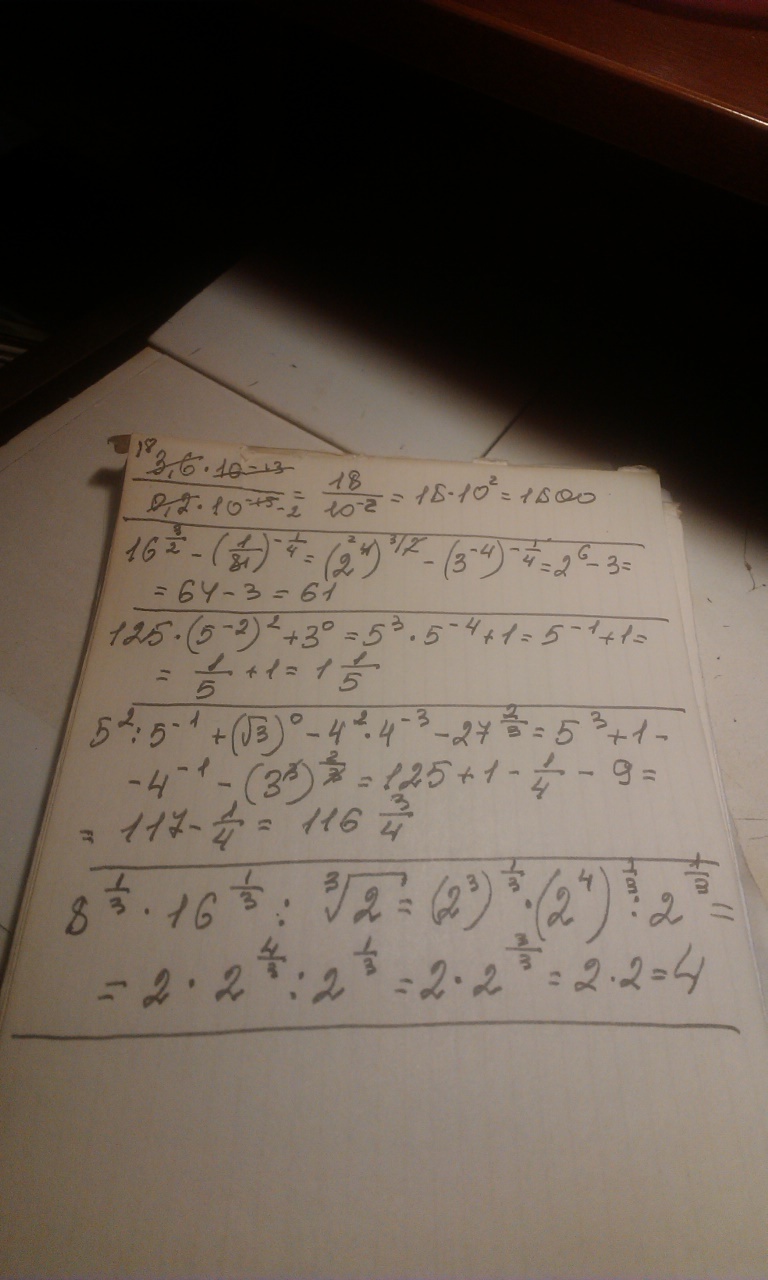 18
3,6 · 10⁻¹³
0,2 · 10⁻¹⁵ ⁻² = 18/10⁻² = 18·10² = 1800
16^(3/2) - (1/81)^(-1/4) = (2⁴)^(3/2) - (3⁻⁴)^(-1/4) = 2⁶ - 3 =
= 64 - 3 = 61
125 · (5⁻²)² + 3⁰ = 5³ · 5⁻⁴ + 1 = 5⁻¹ + 1 =
= 1/5 + 1 = 1 1/5
5² : 5⁻¹ + (√3)⁰ - 4² · 4⁻³ - 27^(2/3) = 5³ + 1 -
- 4⁻¹ - (3³)^(2/3) = 125 + 1 - 1/4 - 9 =
= 117 - 1/4 = 116 3/4
8^(1/3) · 16^(1/3) : ³√2 = (2³)^(1/3) · (2⁴)^(1/3) : 2^(1/3) =
= 2 · 2^(4/3) : 2^(1/3) = 2 · 2^(3/3) = 2 · 2 = 4